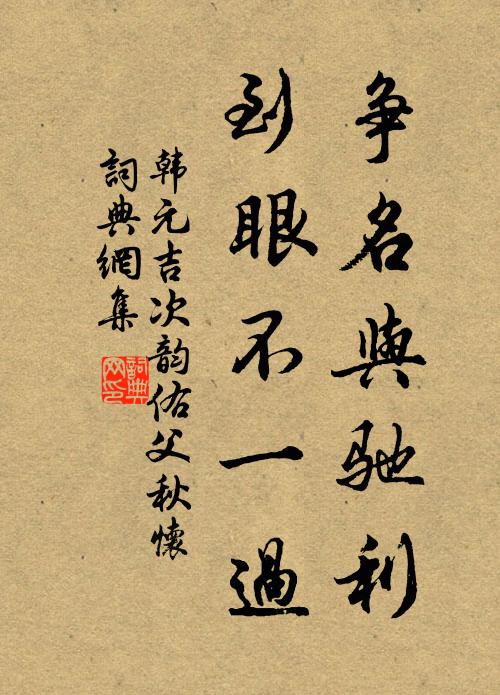 争名與驰利
到眼不一過
韩元吉次韵佑父秋懷
詞典網集
詞典网印